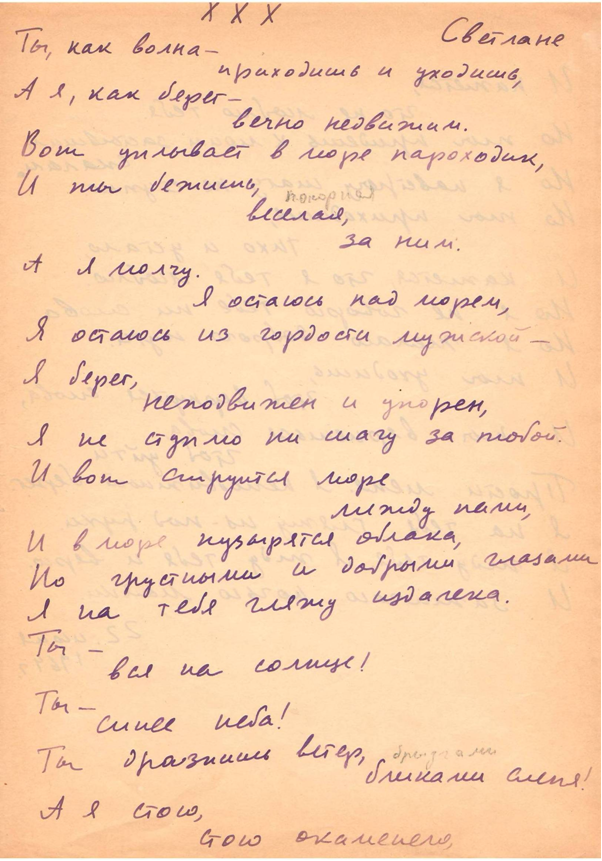 X X X
Светлане
Ты, как волна –
приходишь и уходишь,
А я, как берег –
вечно недвижим.
Вот уплывает в море пароходик,
И ты бежишь,
покорная
веселая,
за ним.
А я молчу.
Я остаюсь над морем,
Я остаюсь из гордости мужской –
Я берег,
неподвижен и упорен,
Я не ступлю ни шагу за тобой.
И вот струится море
между нами,
И в море пузырятся облака,
Но грустными и добрыми глазами
Я на тебя гляжу издалека.
Ты –
вся на солнце!
Ты –
синее неба!
Ты дразнишь ветер,
брызгами
бликами слепя!
А я стою,
стою окаменело,